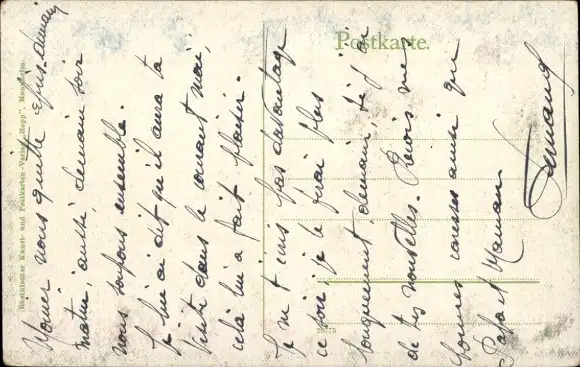 Postkarte.
Rheinischer Kunst- und Postkarten-Verlag "Hepp", Mannheim.
nous quitte demain
matin, aussi demain soir
nous soupons ensemble.
Je lui ai dit qu'il aura ta
visite dans le courant mai,
celà lui a fait plaisir.
Je ne t'écris pas davantage
ce soir, je le ferai plus
longuement demain,
de tes nouvelles. Reçois mes
bonnes caresses ainsi que
Papa et Maman
Fernand